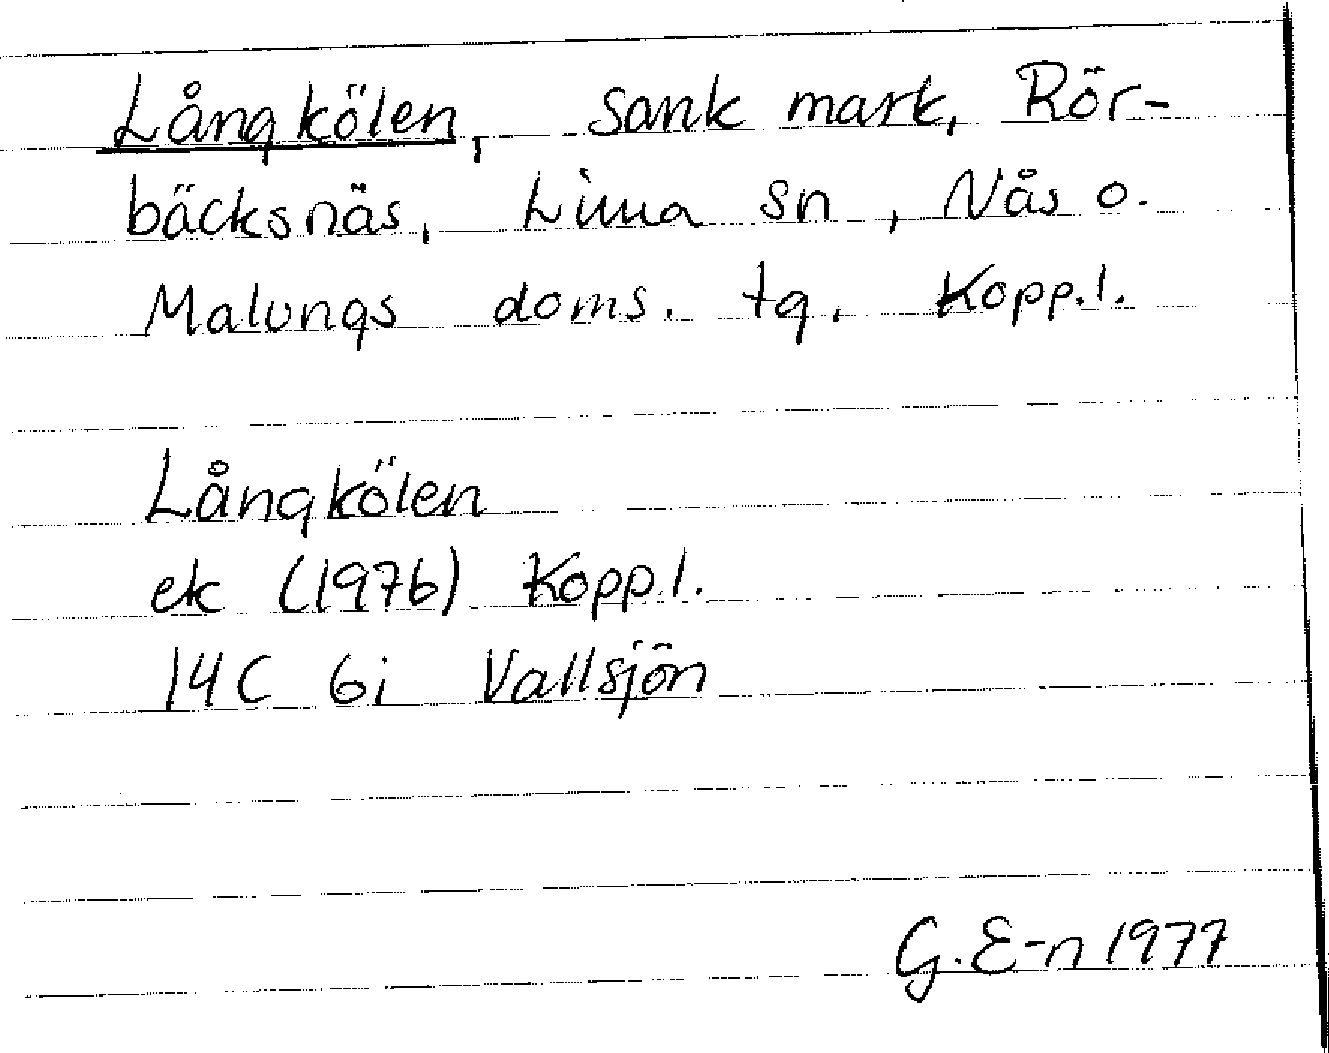 Långkölen, sank mark, Rör-
bäcksnäs, Lima sn, Nås o.
Malungs doms. tg. Kopp.l.
Långkölen
ek (1976) Kopp.l.
14C 6i Vallsjön
G. E-n 1977